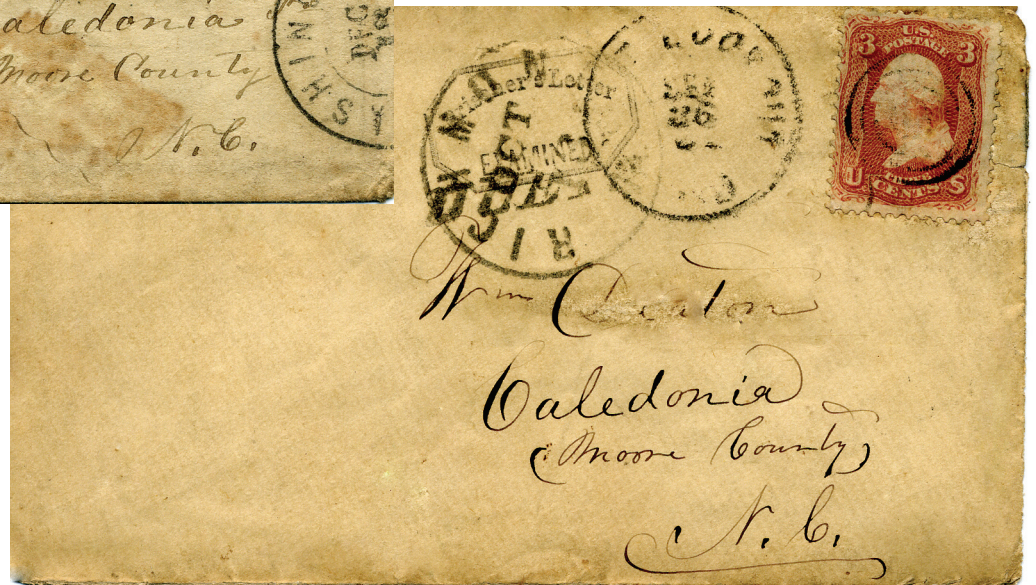 aledonia
Moore County
N.C.
SHIN
DEC
Prisoner's Letter
EXAMINED
RI
OCT
DUE
3 U.S. POSTAGE 3
U CENTS S
Wm Deaton
Caledonia
(Moore County)
N. C.